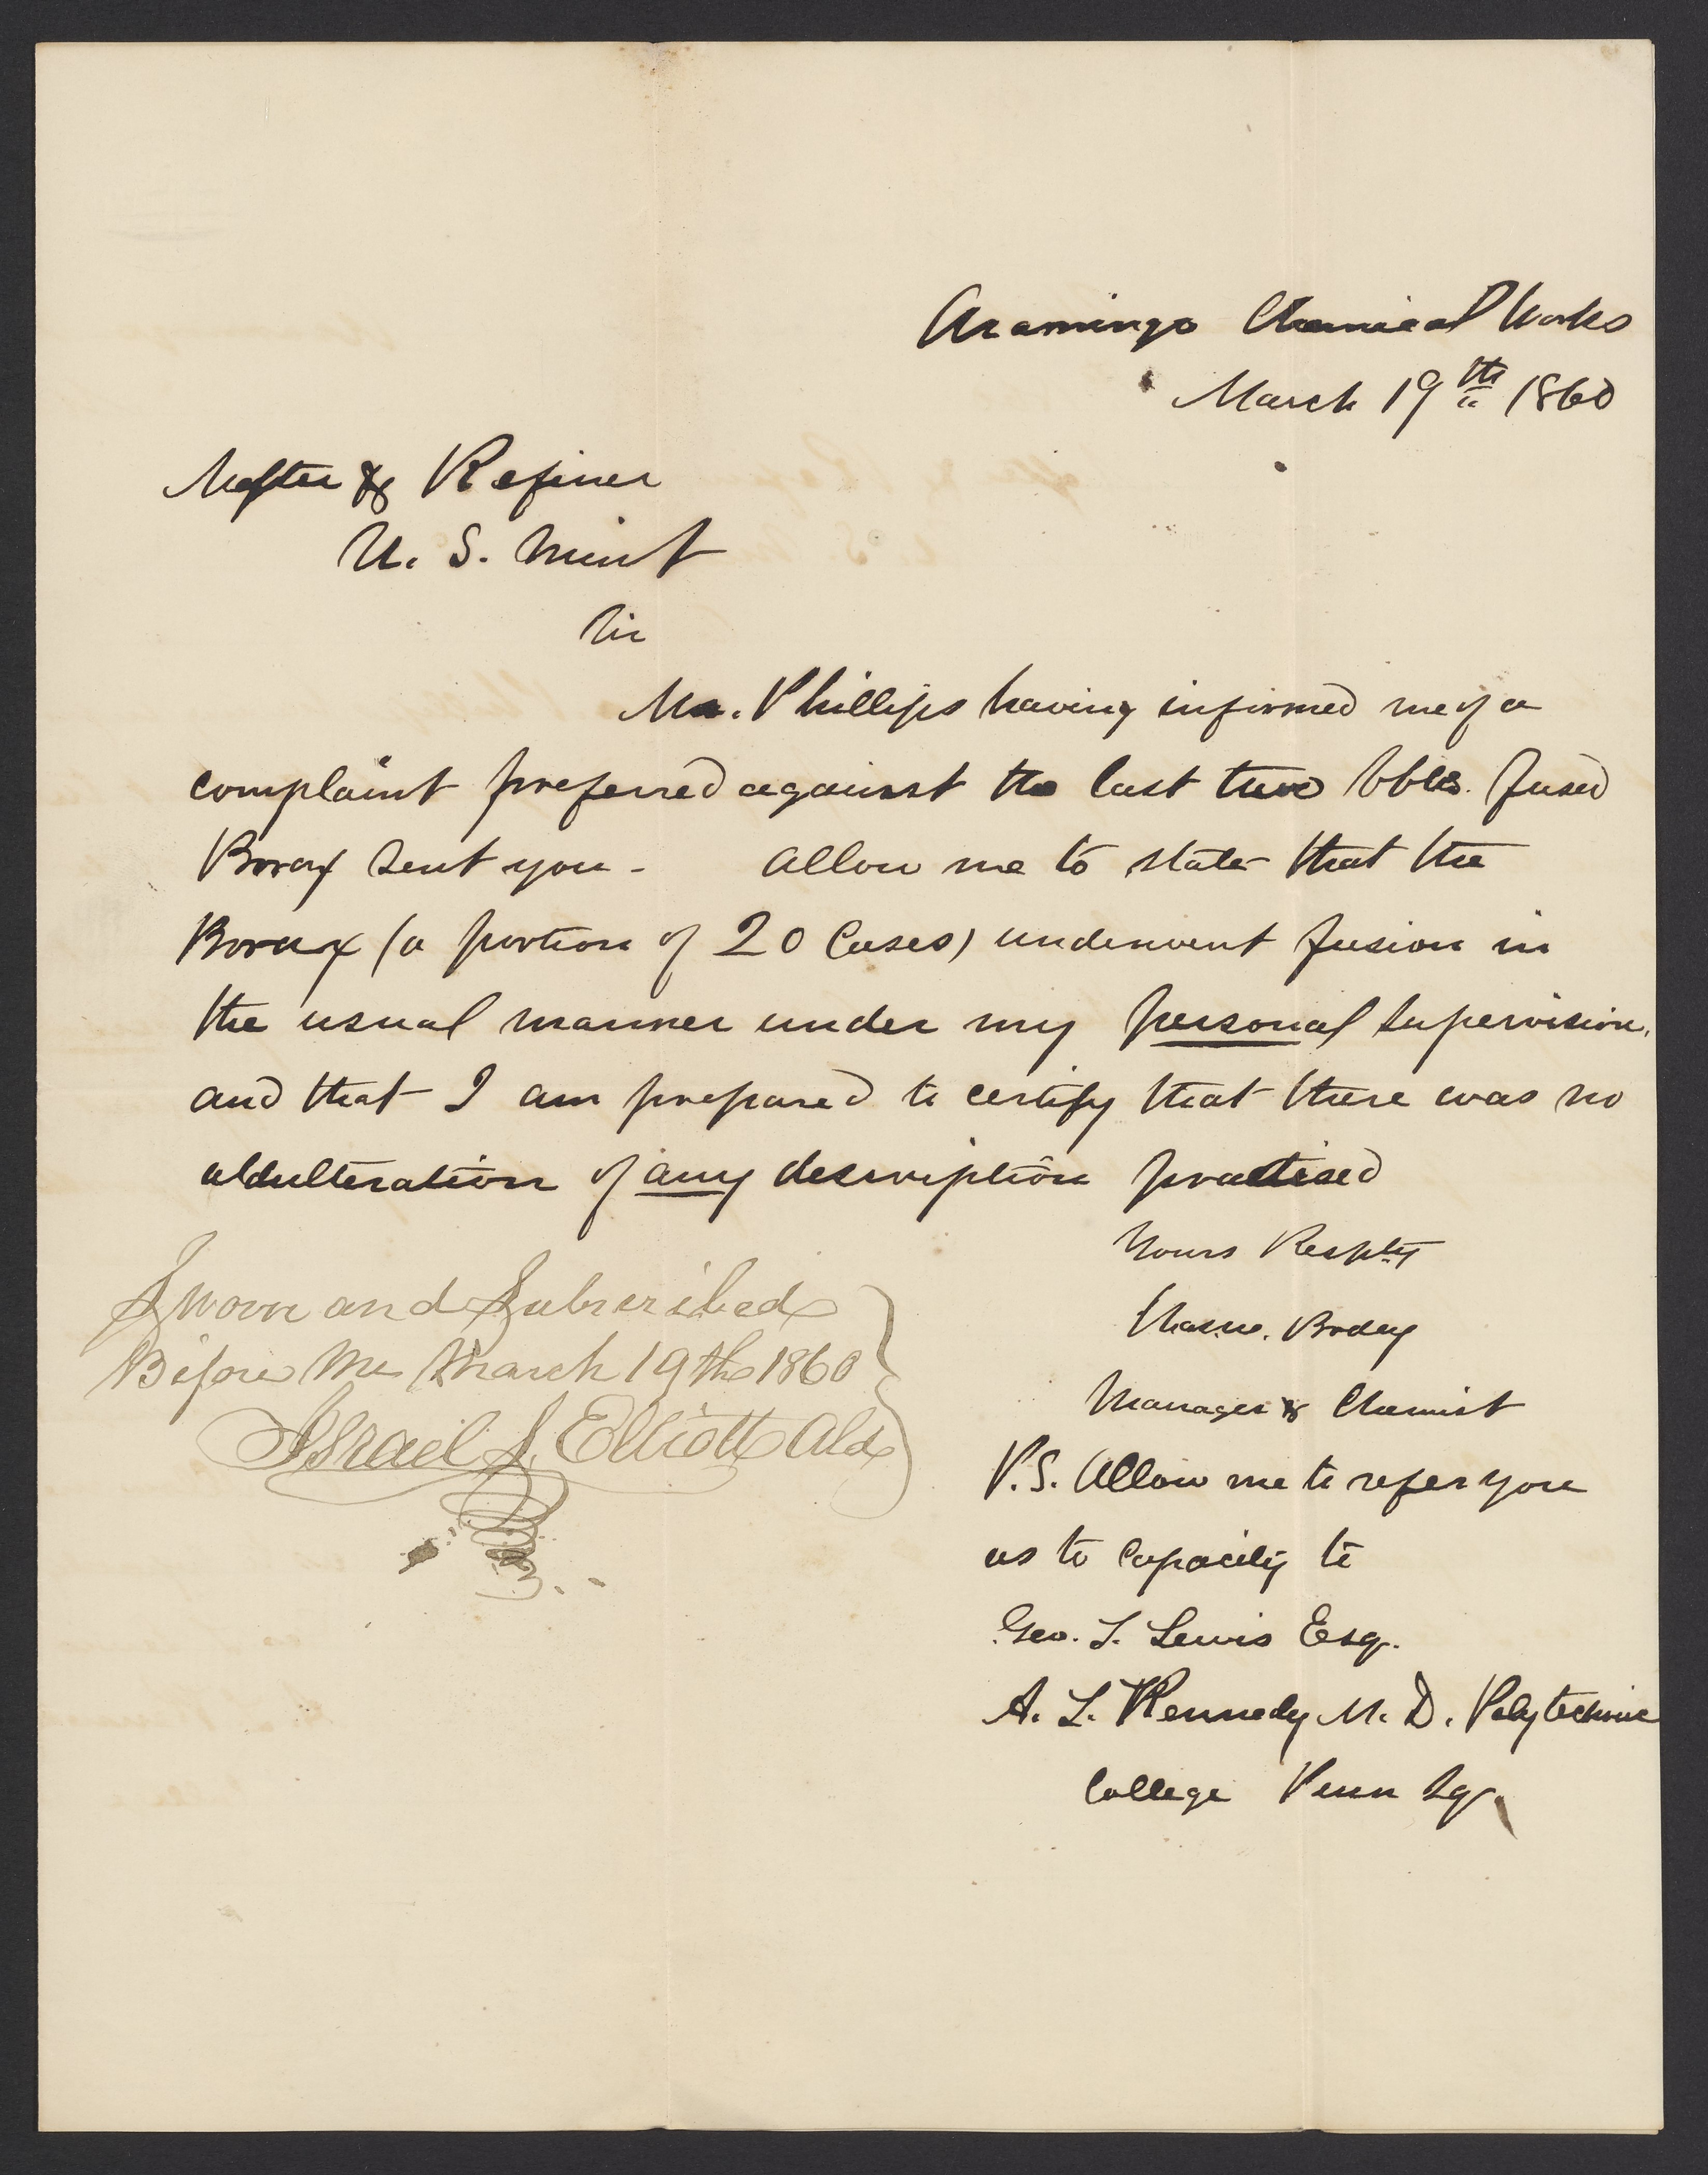 Aramingo Chemical Works
March 19th 1860
Melter & Refiner
U. S. Mint
Sir
Mr. Phillips having informed me of a
complaint preferred against the last two bbls. fused
Borax sent you - Allow me to state that the
Borax (a portion of 20 Cases) underwent fusion in
the usual manner under my personal supervision,
and that I am prepared to certify that there was no
aldulteration of any description practised
Yours Resply
Brodey
Manager & Chemist
P.S. Allow me to refer you
as to Capacity to
Geo. T. Lewis Esq.
A. L. Kennedy M. D. Polytechnic
College Penn Sq.
Sworn and Subscribed
Before Me March 19th 1860
Israel J. Elliott Ald